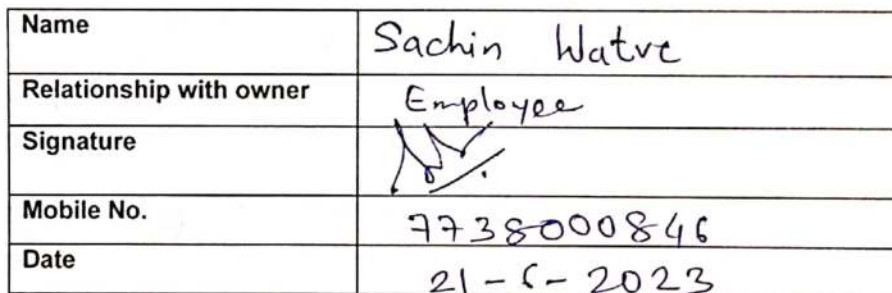 Name Sachin Watve
Relationship with owner Employee
Signature
Mobile No. 7738000846
Date 21-6-2023